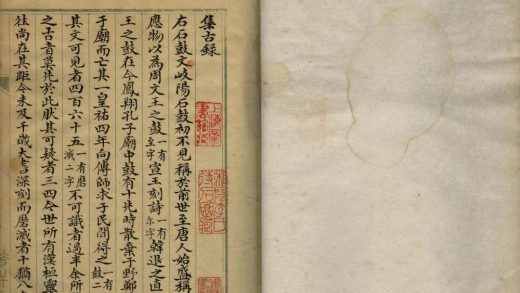 集古錄
右石鼓文岐陽石鼓初不見稱於前世至唐人始盛稱
應物以為周文王之鼓一有至字宣王刻詩一有尔字韓退之直
王之鼓在今鳳翔孔子廟中鼓有十先時散棄于野鄭
子廟而亡其一皇祐四年向傳師求于民間得之一有鼓二
其文可見者四百六十五一有磨滅二字不可識者過半余所
之古者莫先於此然其可疑者三四今世所有漢桓靈
往尚在其距今未及千歲大書深刻而磨滅者十猶八